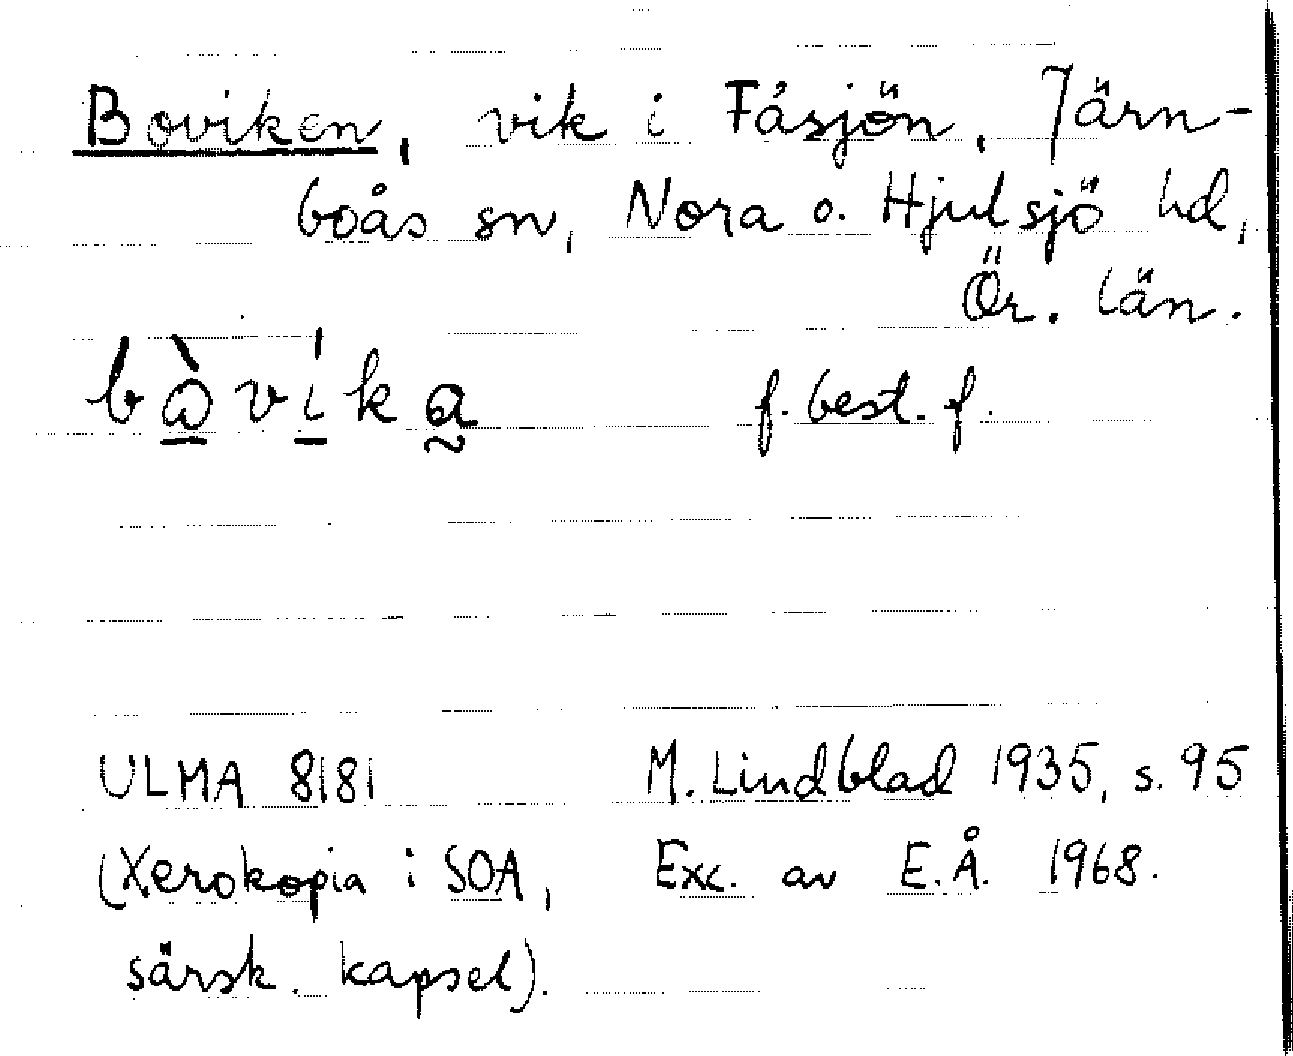 Boviken, vik i Fåsjön, Järn-
boås sn, Nora o. Hjulsjö hd,
Ör. län.
bò̱vi̱̍ka̰ f. best. f.
ULMA 8181 M. Lindblad 1935, s. 95
(Xerokopia i SOA, Exc. av E.Å. 1968.
särsk. kapsel).